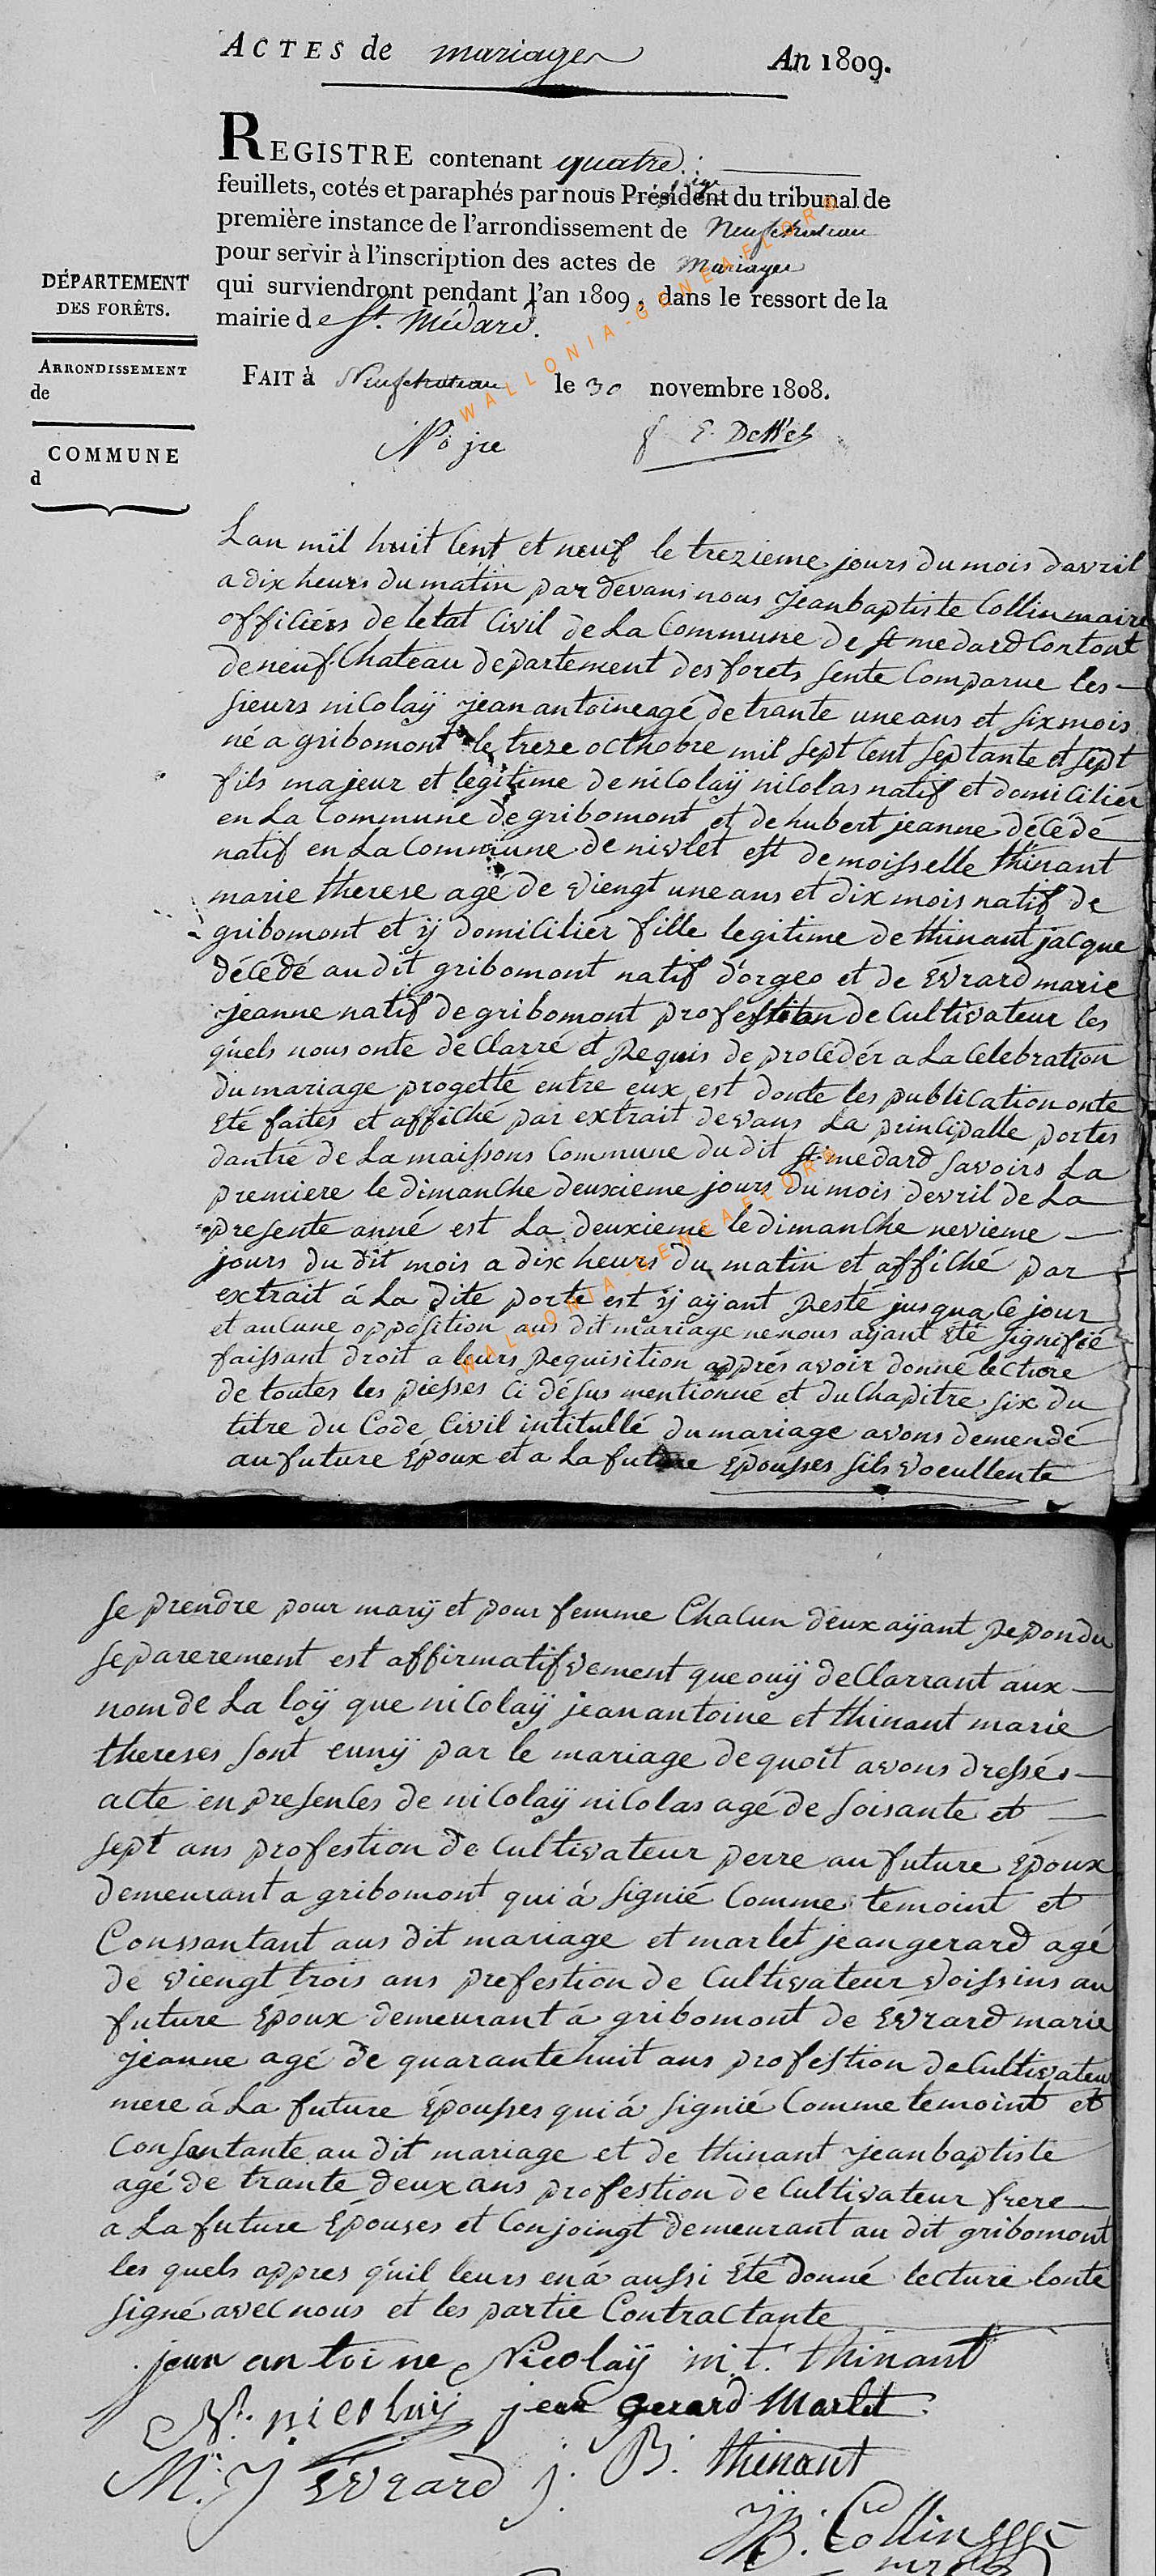 ACTES de mariages An 1809.
REGISTRE contenant quatre
feuillets, cotés et paraphés par nous Président du tribunal de
première instance de l'arrondissement de Neufchateau
pour servir à l'inscription des actes de Mariages
qui surviendront pendant l'an 1809, dans le ressort de la
mairie de St. Médard.
DÉPARTEMENT
DES FORÊTS.
ARRONDISSEMENT
de
COMMUNE
d
FAIT à Neufchateau le 30 novembre 1808.
No 1re
WALLONIA-GENEAFLORE
Lan mil huit Cent et neuf le trezieme jours du mois davril
a dix heurs du matin par devans nous jeanbaptiste Collin maire
officiérs de letat Civil de La Commune de st medard Contont
de neuf Chateau departement des forets sente Comparue les
sieurs nicolaÿ jean antoine agé de trante une ans et six mois
né a gribomont le treze octhobre mil sept Cent septante et sept
fils majeur et legitime de nicolaÿ nicolas natif et domiciliér
en La Commune de gribomont et de hubert jeanne décédé
natif en La Commune de nivlet est demoisselle thinant
marie therese agé de viengt une ans et dix mois natif de
gribomont et ÿ domiciliér fille legitime de thinant jacque
décédé au dit gribomont natif d'orgeo et de Evrard marie
jeanne natif de gribomont profession de Cultivateur les
quels nous onte declarré et Requis de procédér a La Celebration
du mariage progetté entre eux est donte les publication onte
Eté faites et affiché par extrait devans La principalle portes
dantré de La maissons Commune du dit st medard savoirs La
premiere le dimanche deuxieme jours du mois devril de La
presente anné est La deuxieme le dimanche nevieme
jours du dit mois a dix heurs du matin et affiché par
extrait á La dite porte est ÿ aÿant Resté jusqua Ce jour
et aucune opposition aus dit mariage ne nous ajant Eté signifié
faissant droit a leurs Requisition apprés avoir donné lecture
de toutes les piesses Ci désus mentionné et du Chapitre six du
titre du Code Civil intitullé du mariage avons demendé
au future Epoux et a La future Epousses sils vocullente
WALLONIA-GENEAFLORE
se prendre pour marÿ et pour femme Chacun deux aÿant Repondu
separerement est affirmatifvement que ouÿ declarrant aux
nom de La loÿ que nicolaÿ jean antoine et thinant marie
thereses sont eunÿ par le mariage de quoit avons dressés
acte en presences de nicolaÿ nicolas agé de soisante et
sept ans profestion de Cultivateur perre au future Epoux
demeurant a gribomont qui á signié Comme temoint et
Conssantant aus dit mariage et marlet jean gerard agé
de viengt trois ans profestion de Cultivateur voissins au
future Epoux demeurant á gribomont de Evrard marie
jeanne agé de quarante uit ans profestion de Cultivateur
mere á La future Epousses qui á signié Comme temoint et
Consantante au dit mariage et de thinant jean baptiste
agé de trante deux ans profestion de Cultivateur frere
a La future Epouses et Conjoingt demeurant au dit gribomont
les quels appres quil leurs en á aussi Eté donné lecture lonte
signé avec nous et les partie Contractante
jean antoine Nicolaÿ m.t. thinant
N. nicolaÿ jean gerard Marlet
M. J Evrard j. B. thinant
JB. Collin